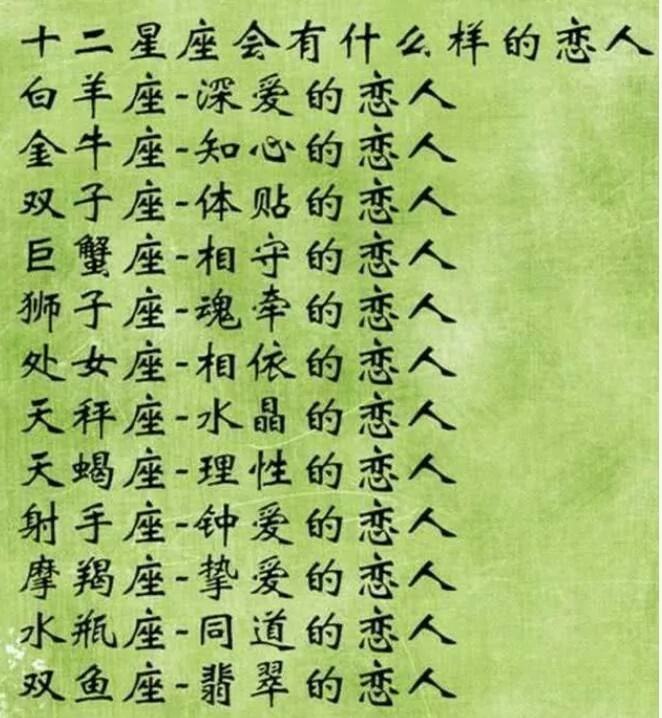 十二星座会有什么样的恋人
白羊座-深爱的恋人
金牛座-知心的恋人
双子座-体贴的恋人
巨蟹座-相守的恋人
狮子座-魂牵的恋人
处女座-相依的恋人
天秤座-水晶的恋人
天蝎座-理性的恋人
射手座-钟爱的恋人
摩羯座-挚爱的恋人
水瓶座-同道的恋人
双鱼座-翡翠的恋人